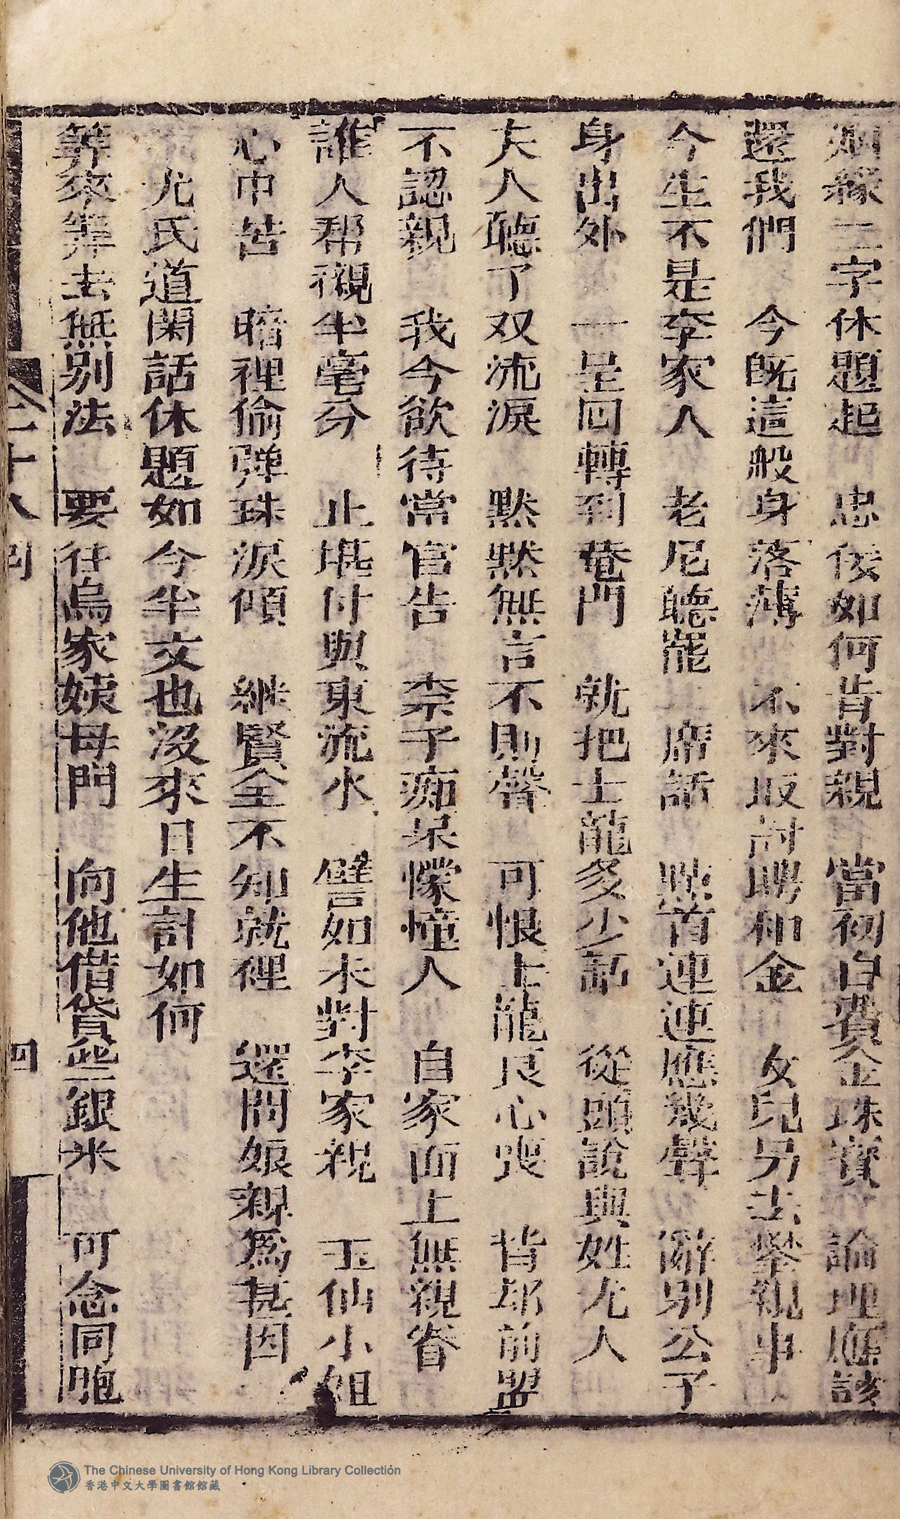 姻緣二字休題起　忠佞如何肯對親　當初白費金珠寶　論理應該
還我們　今既這般身落薄　不來取討聘和金　女兒另去攀親事
今生不是李家人　老尼聽罷一席話　點首連連應幾聲　辭別公子
身出外　一呈回轉到菴門　就把士龍多少話　從頭說與姓尤人
夫人聽了双流淚　默默無言不則聲　可恨士龍良心喪　背却前盟
不認親　我今欲待當官告　柰子痴呆懞憧人　自家面上無親眷
誰人帮襯半毫分　止堪付與東流水　譬如未對李家親　玉仙小姐
心中苦　暗裡偷弹珠淚傾　継賢全不知就裡　還問娘親爲甚因
尤氏道閑話休題如今半文也沒來日生計如何
算來算去無別法　要往烏家姨母門　向他借貸些銀米　可念同胞
卷二十八回
四
The Chinese University of Hong Kong Library Collection
香港中文大學圖書館館藏